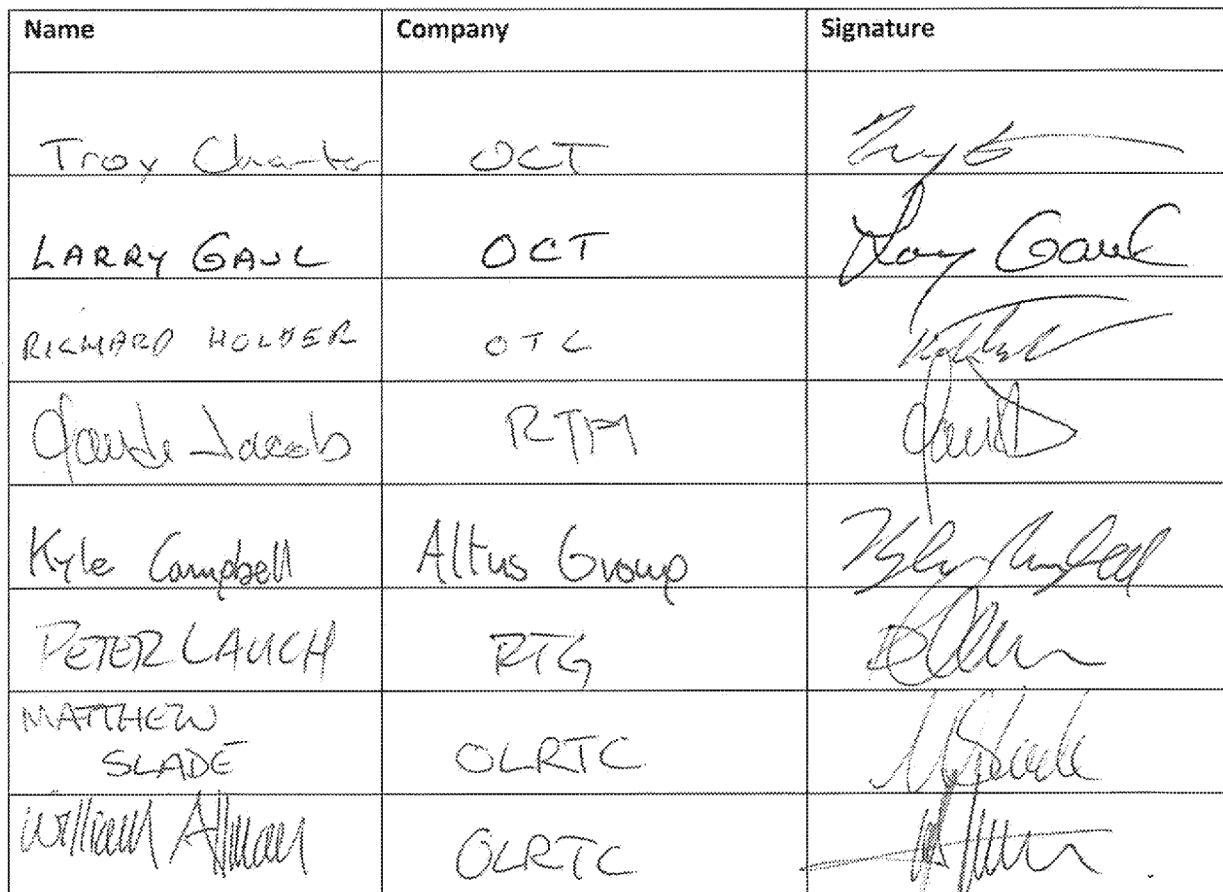 Name Company Signature
Troy Charter OCT
LARRY GAUL OCT Larry Gaul
RICHARD HOLDER OTC
Claude Jacob RTM
Kyle Campbell Altus Group Kyle Campbell
PETER LAUCH RTG
MATTHEW
SLADE OLRTC MSlade
William Allman OLRTC